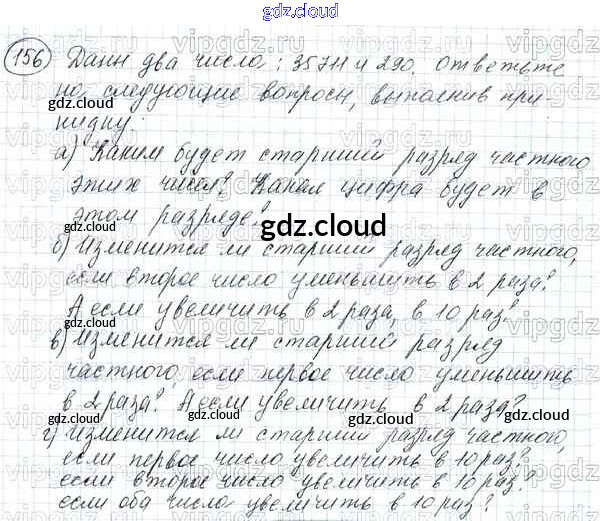 gdz.cloud
156 Даны два числа: 35711 и 290. Ответьте
на следующие вопросы, выполнив при-
gdz.cloud
gdz.cloud
кидку:
а) Каким будет старший разряд частного
этих чисел? Какая цифра будет в
этом разряде?
gdz.cloud
б) Изменится ли старший разряд частного,
если второе число уменьшить в 2 раза?
А если увеличить в 2 раза, в 10 раз?
gdz.cloud
gdz.cloud
в) Изменится ли старший разряд
частного, если первое число уменьшить
в 2 раза? А если увеличить в 2 раза?
gdz.cloud
gdz.cloud
г) Изменится ли старший разряд частного,
если первое число увеличить в 10 раз?
если второе число увеличить в 10 раз?
если оба числа увеличить в 10 раз?
gdz.cloud